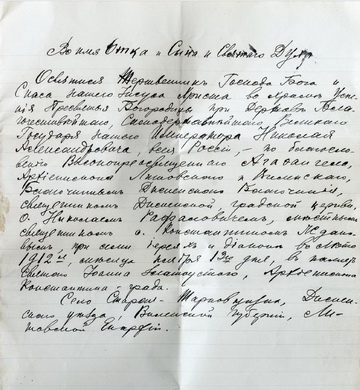 Во имя Отца и Сына и Святаго Духа
Освятися Жертвенникъ Господа Бога и
Спаса нашего Іисуса Христа во храмъ Успе-
нія Пресвятыя Богородицы при Державѣ Благо-
честивѣйшаго, Самодержавнѣйшаго, Великаго
Государя нашего Императора Николая
Александровича, всея Россіи, - по благосло-
венію Высокопреосвященнаго Агаѳангела,
Архіепископа Литовскаго и Виленскаго,
Благочиннымъ Дисненскаго Благочинія,
священникомъ Дисненской градской церкви
о. Николаемъ Рафаловичемъ, мѣстнымъ
священникомъ о. Константиномъ Ждано-
вымъ, при семи іереяхъ и діаконѣ въ лѣто
1912 ое, мѣсяца ноября 13го дня, въ память
святаго Іоанна Златоустаго, Архіепископа
Константина-града.
Село Старо-Шарковщизна, Диснен-
скаго уѣзда, Виленской губерніи, Ли-
товской Епархіи.